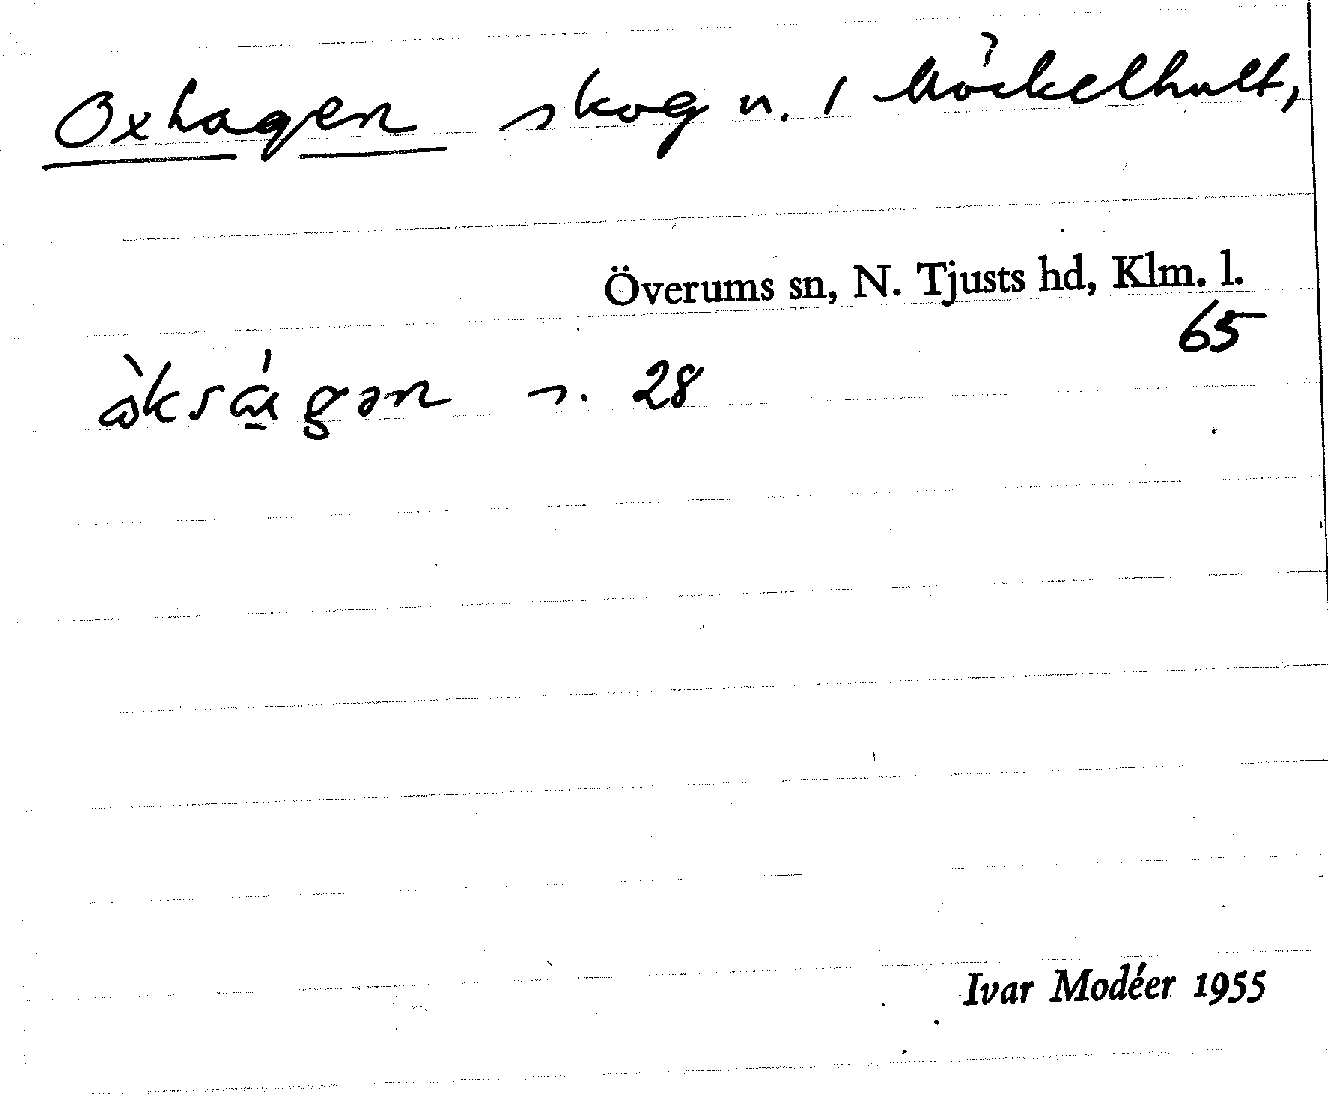 Oxhagen skog n. / Möckelhult,
Överums sn, N. Tjusts hd, Klm. l.
65
s. 28
Ivar Modéer 1955